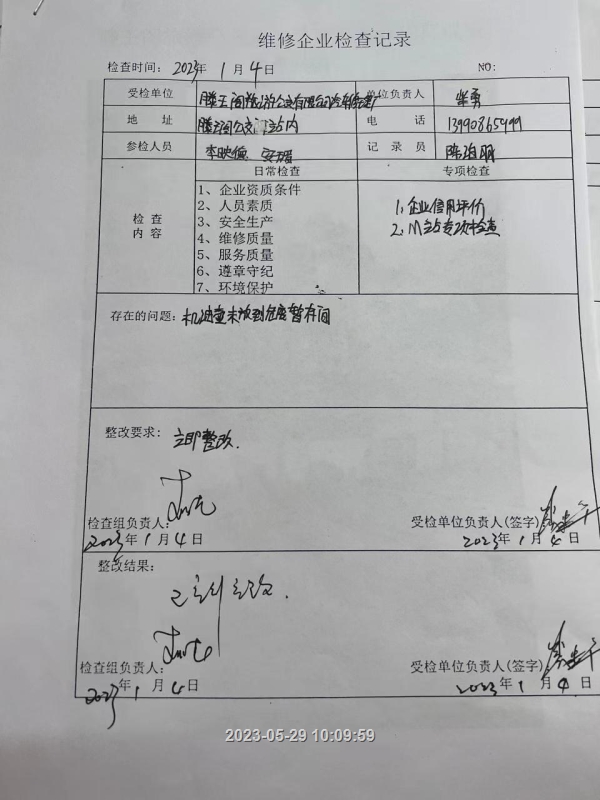 维修企业检查记录
检查时间: 2023年 1 月 4 日 NO:
受检单位 公交有限公司 单位负责人
地 址 公交 站内 电 话 13990865499
参检人员 李映 记 录 员
日常检查 专项检查
检 查
内 容
1、企业资质条件
2、人员素质
3、安全生产
4、维修质量
5、服务质量
6、遵章守纪
7、环境保护
1、企业信用评价
2、M站专项检查
存在的问题: 机油壶未放到危废暂存间
整改要求: 立即整改.
检查组负责人: 受检单位负责人(签字)
2023年 1 月 4 日 2023年 1 月 4 日
整改结果:
已立即整改.
检查组负责人: 受检单位负责人(签字)
2023年 1 月 4 日 2023年 1 月 4 日
2023-05-29 10:09:59